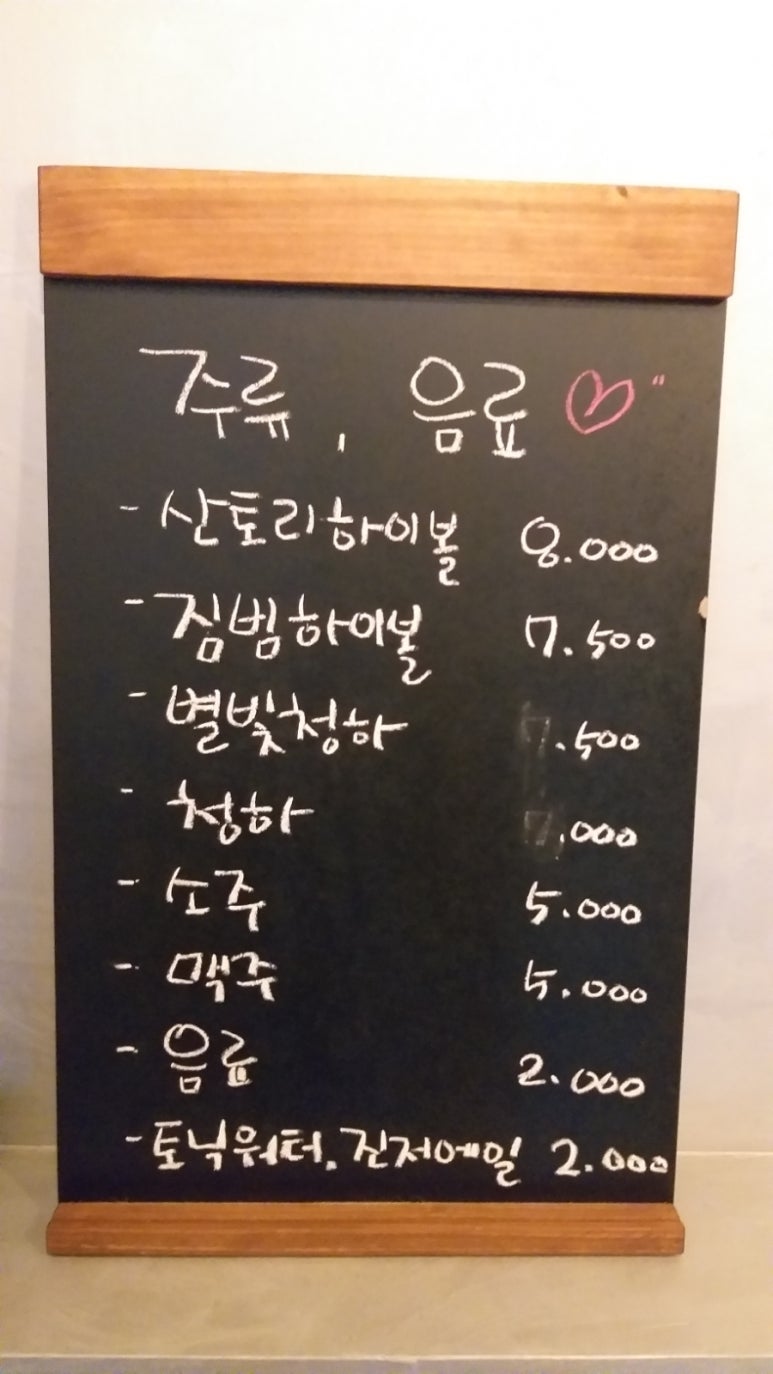 주류, 음료 ♡"
- 산토리하이볼 8.000
- 짐빔하이볼 7.500
- 별빛청하 7.500
- 청하 7.000
- 소주 5.000
- 맥주 5.000
- 음료 2.000
- 토닉워터, 진저에일 2.000